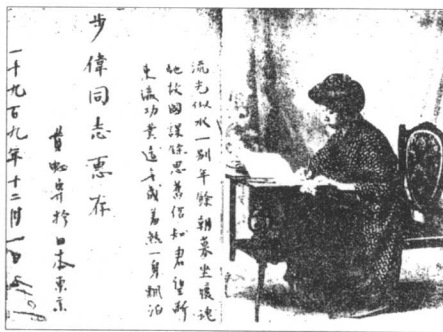 流光似水一別年餘朝暮坐懷魂
故國謀餘思舊侶知君望斷
東瀛功業遠千載一身飄泊
步偉同志惠存
黃於日本東京
一千九百九年十二月一日